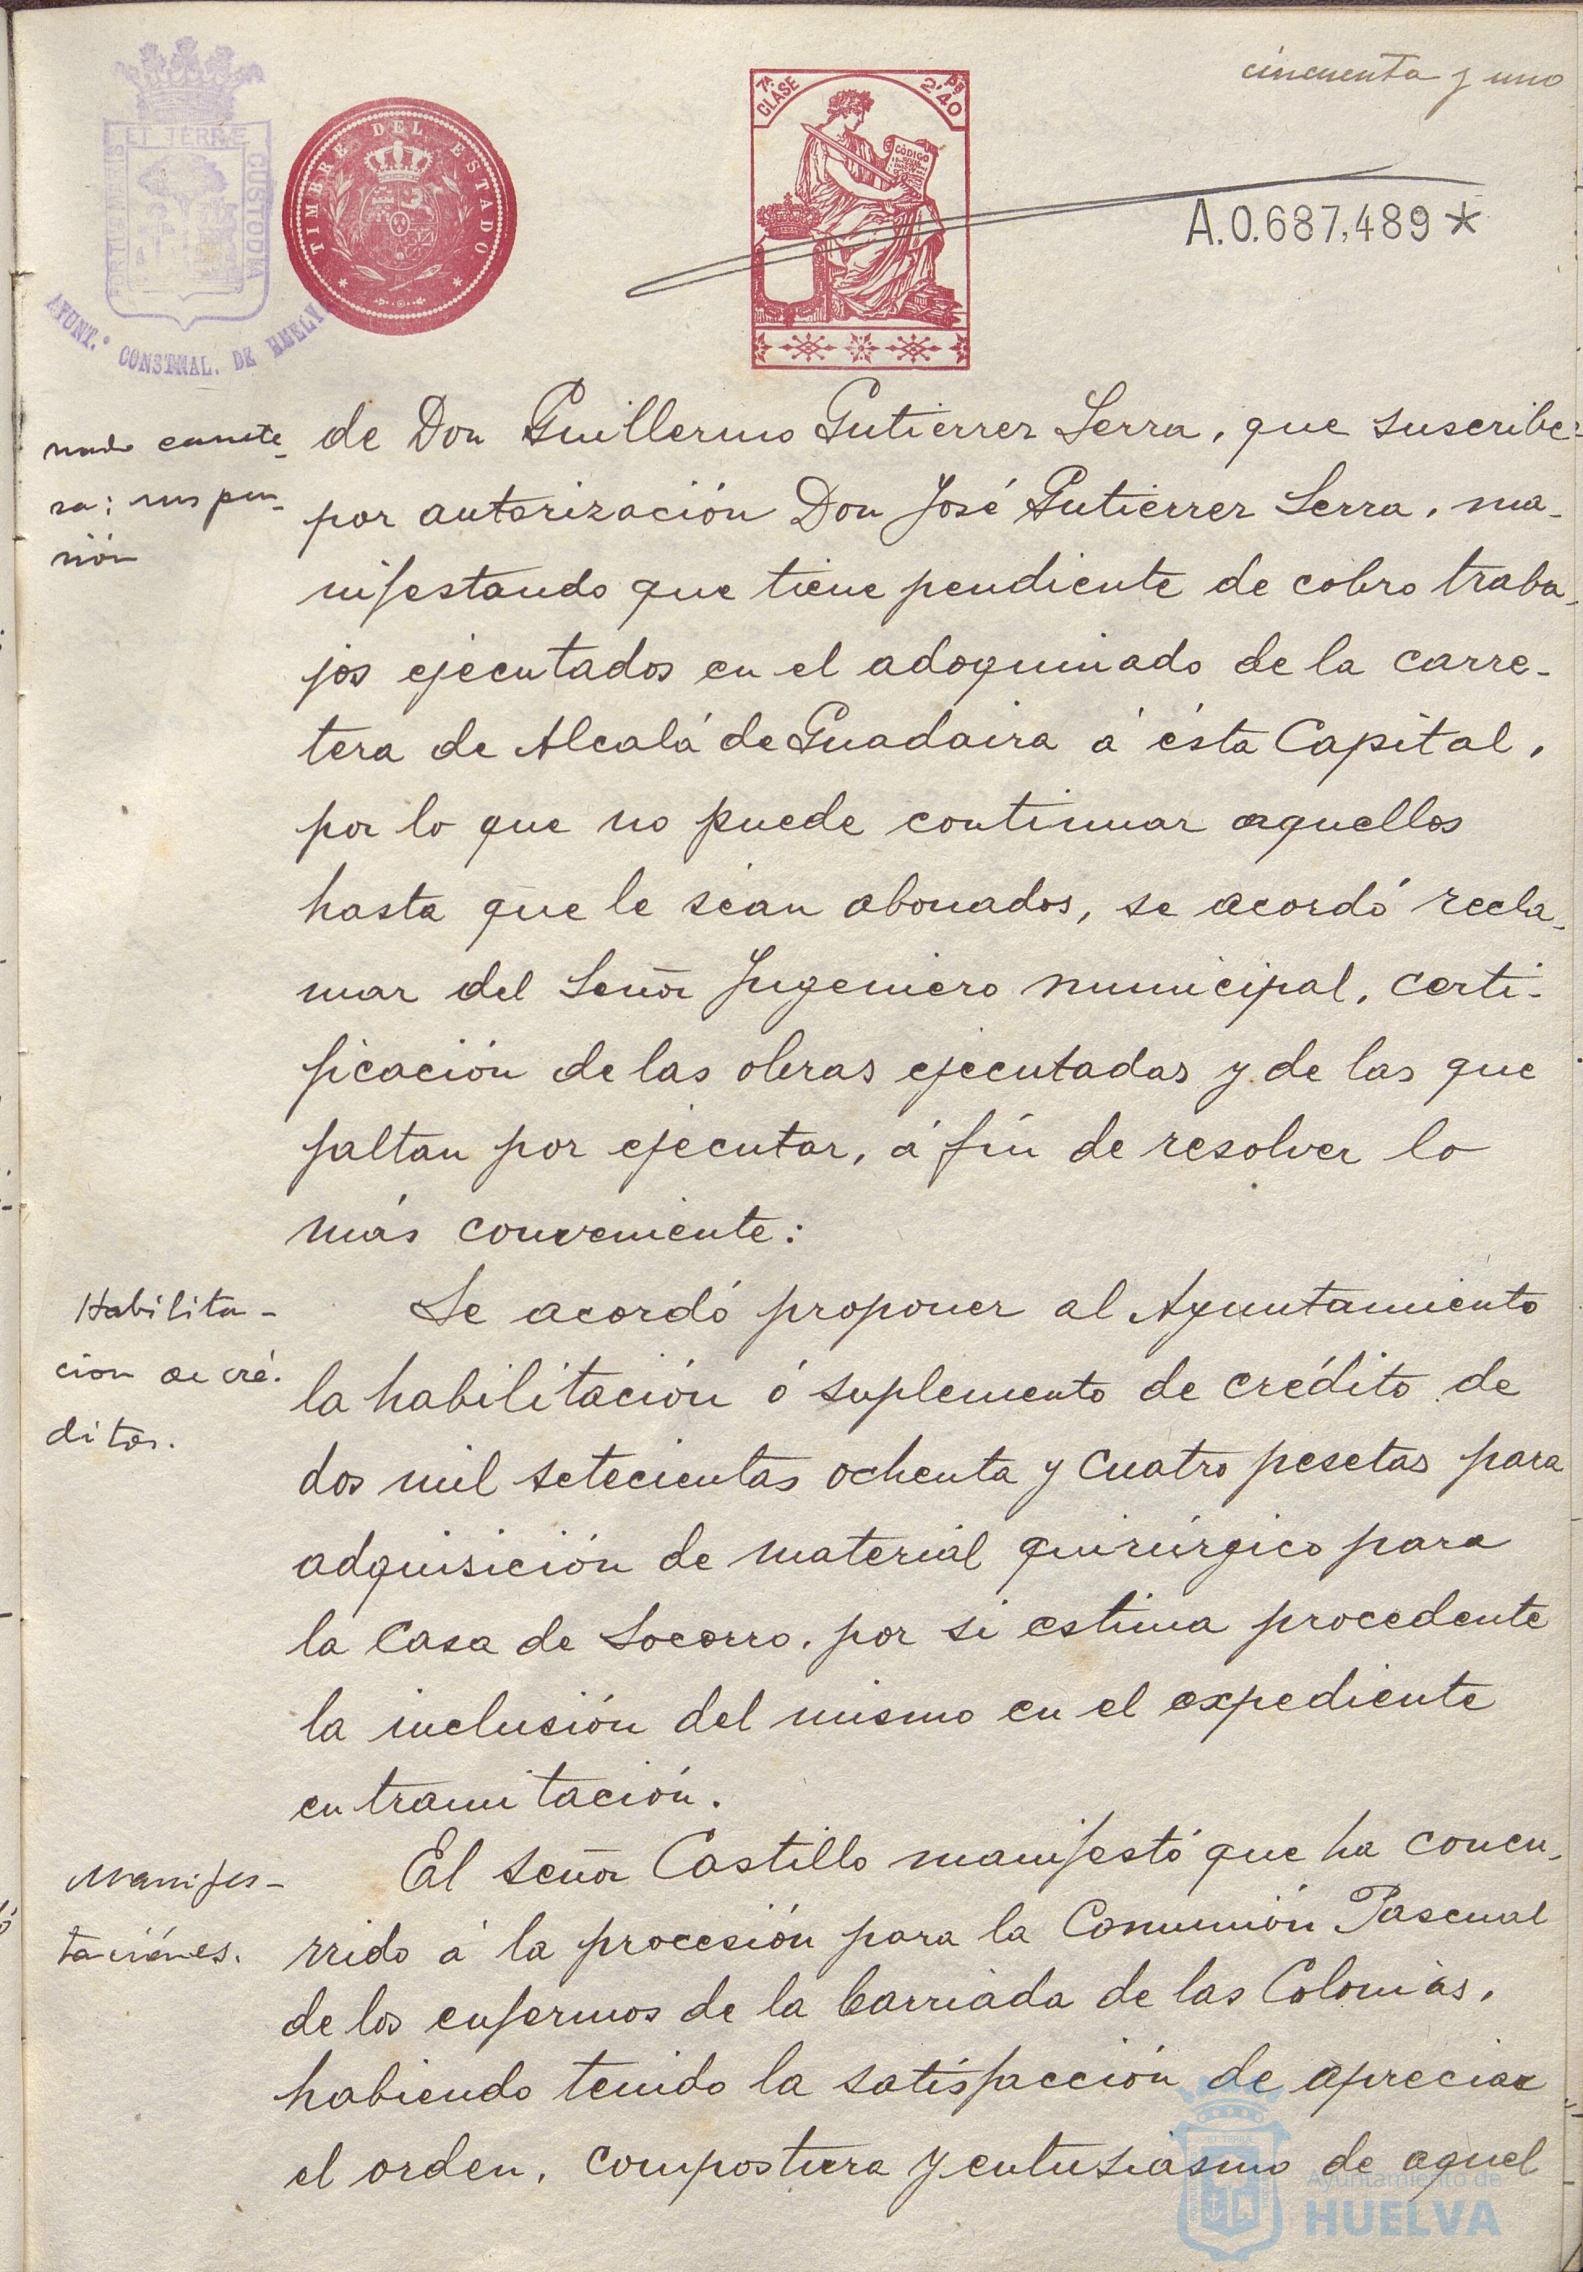 cincuenta y uno
PORTUS MARIS ET TERRÆ CUSTODIA
AYUNT.º CONSTNAL. DE HUELVA
TIMBRE DEL ESTADO
7ª CLASE
2'40
CÓDIGO
A.0.687,489*
nado carrete-
ra: suspen-
sión
de Don Guillermo Gutierrez Serra, que suscribe
por autorización Don José Gutierrez Serra, ma-
nifestando que tiene pendiente de cobro traba-
jos ejecutados en el adoquinado de la carre-
tera de Alcalá de Guadaira á ésta Capital,
por lo que no puede continuar aquellos
hasta que le sean abonados, se acordó recla-
mar del Señor Ingeniero municipal, certi-
ficación de las obras ejecutadas y de las que
faltan por ejecutar, á fin de resolver lo
más conveniente:
Habilita-
cion de cré-
ditos.
Se acordó proponer al Ayuntamiento
la habilitación ó suplemento de crédito de
dos mil setecientas ochenta y cuatro pesetas para
adquisición de material quirúrgico para
la Casa de Socorro, por si estima procedente
la inclusión del mismo en el expediente
en tramitación.
Manifes-
taciones.
El señor Castillo manifestó que ha concu-
rrido á la procesión para la Comunión Pascual
de los enfermos de la barriada de las Colonias,
habiendo tenido la satisfacción de apreciar
el orden, compostura y entusiasmo de aquel
Ayuntamiento de
HUELVA